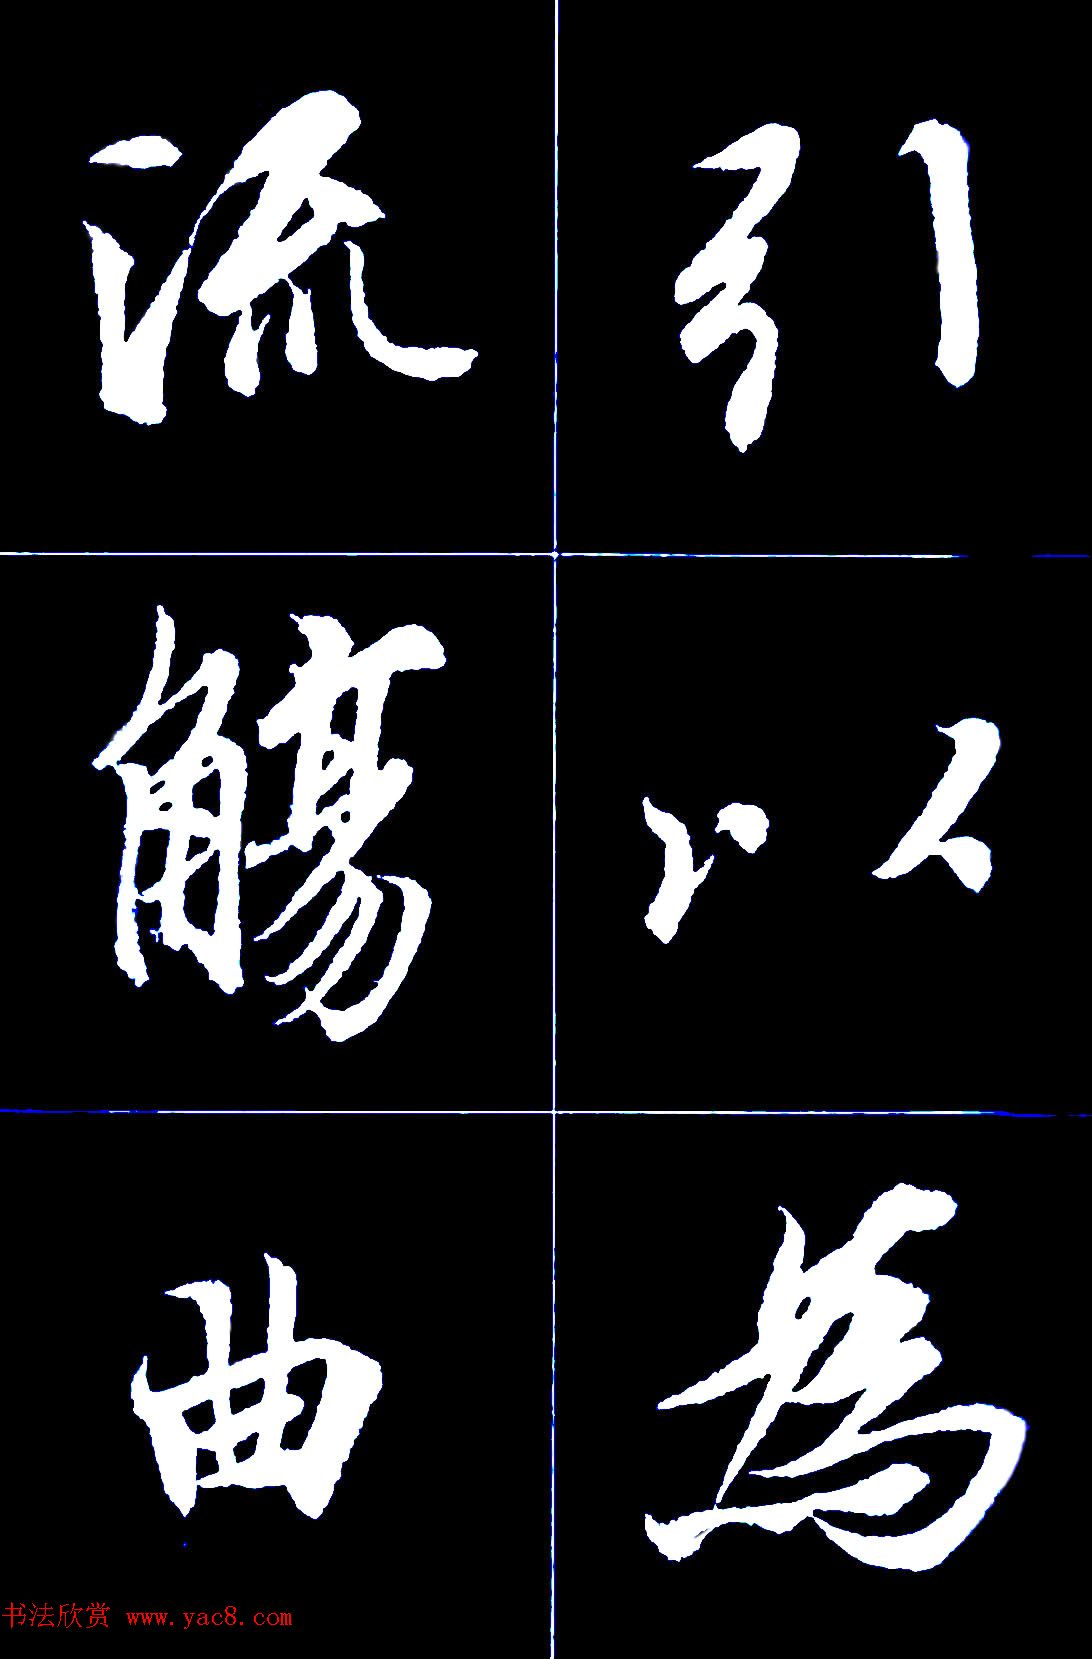 引以為
流觴曲
书法欣赏 www.yac8.com